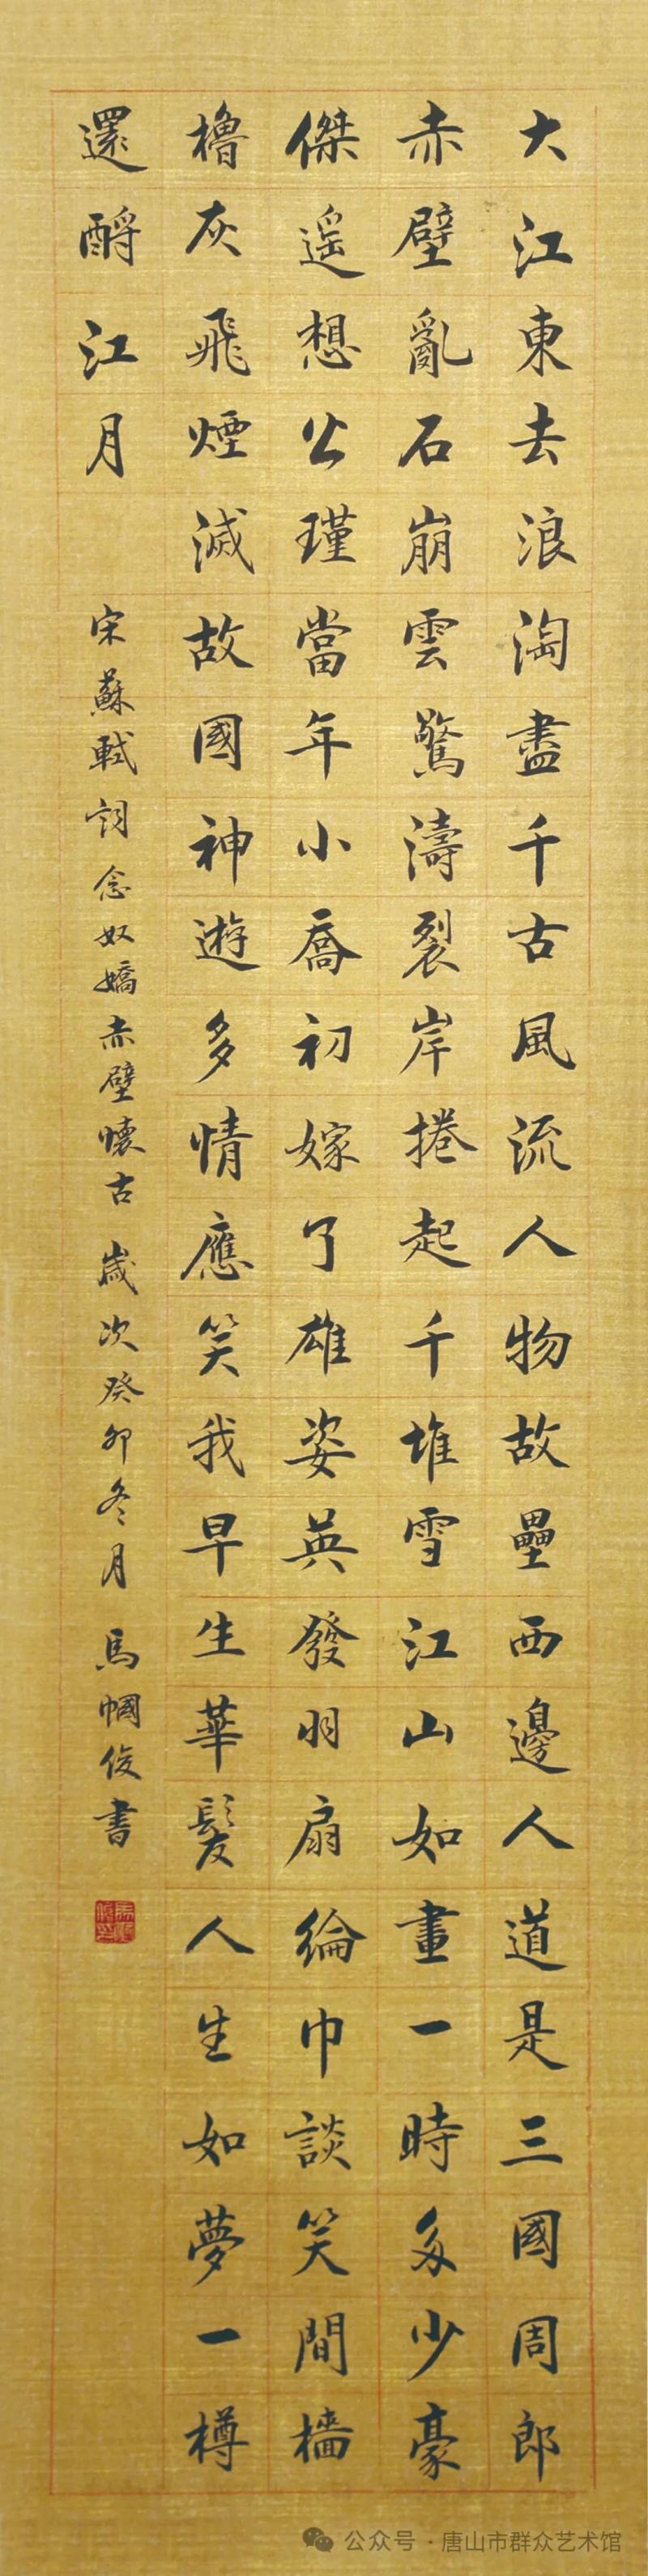 大江東去浪淘盡千古風流人物故壘西邊人道是三國周郎
赤壁亂石崩雲驚濤裂岸捲起千堆雪江山如畫一時多少豪
傑遥想公瑾當年小喬初嫁了雄姿英發羽扇綸巾談笑間檣
櫓灰飛煙滅故國神遊多情應笑我早生華髮人生如夢一樽
還酹江月
宋蘇軾詞念奴嬌赤壁懷古 歲次癸卯冬月 馬幗俊書
公众号·唐山市群众艺术馆